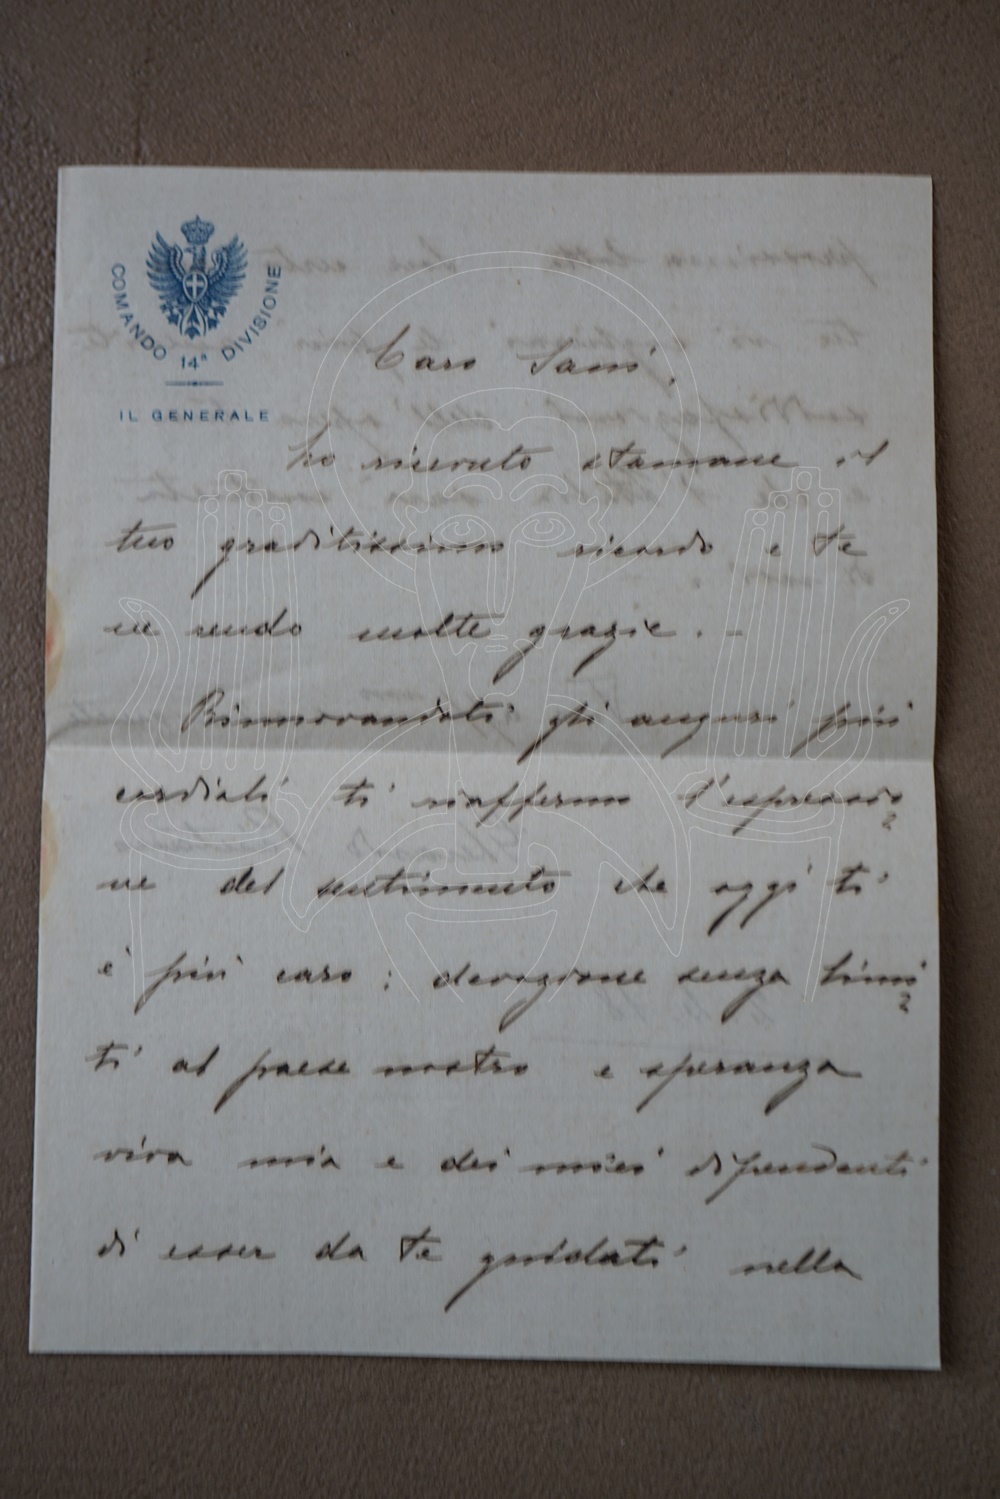 COMANDO 14ª DIVISIONE
IL GENERALE
Caro Sani,
ho ricevuto stamane il
tuo graditissimo ricordo e te
ne rendo molte grazie. -
Rinnovandoti gli auguri più
cordiali ti riaffermo l'espressio
ne del sentimento che oggi ti
è più caro: devozione senza limi
ti al paese nostro e speranza
viva mia e dei miei dipendenti
di esser da te guidati nella